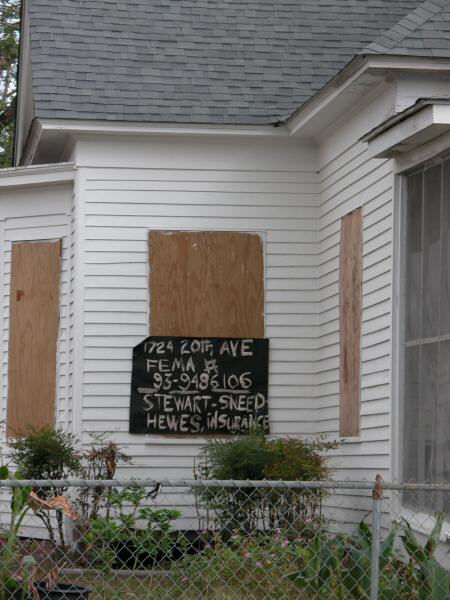 1724 20TH, AVE
FEMA #
93-9486106
STEWART-SNEED-
HEWES, INSURANCE